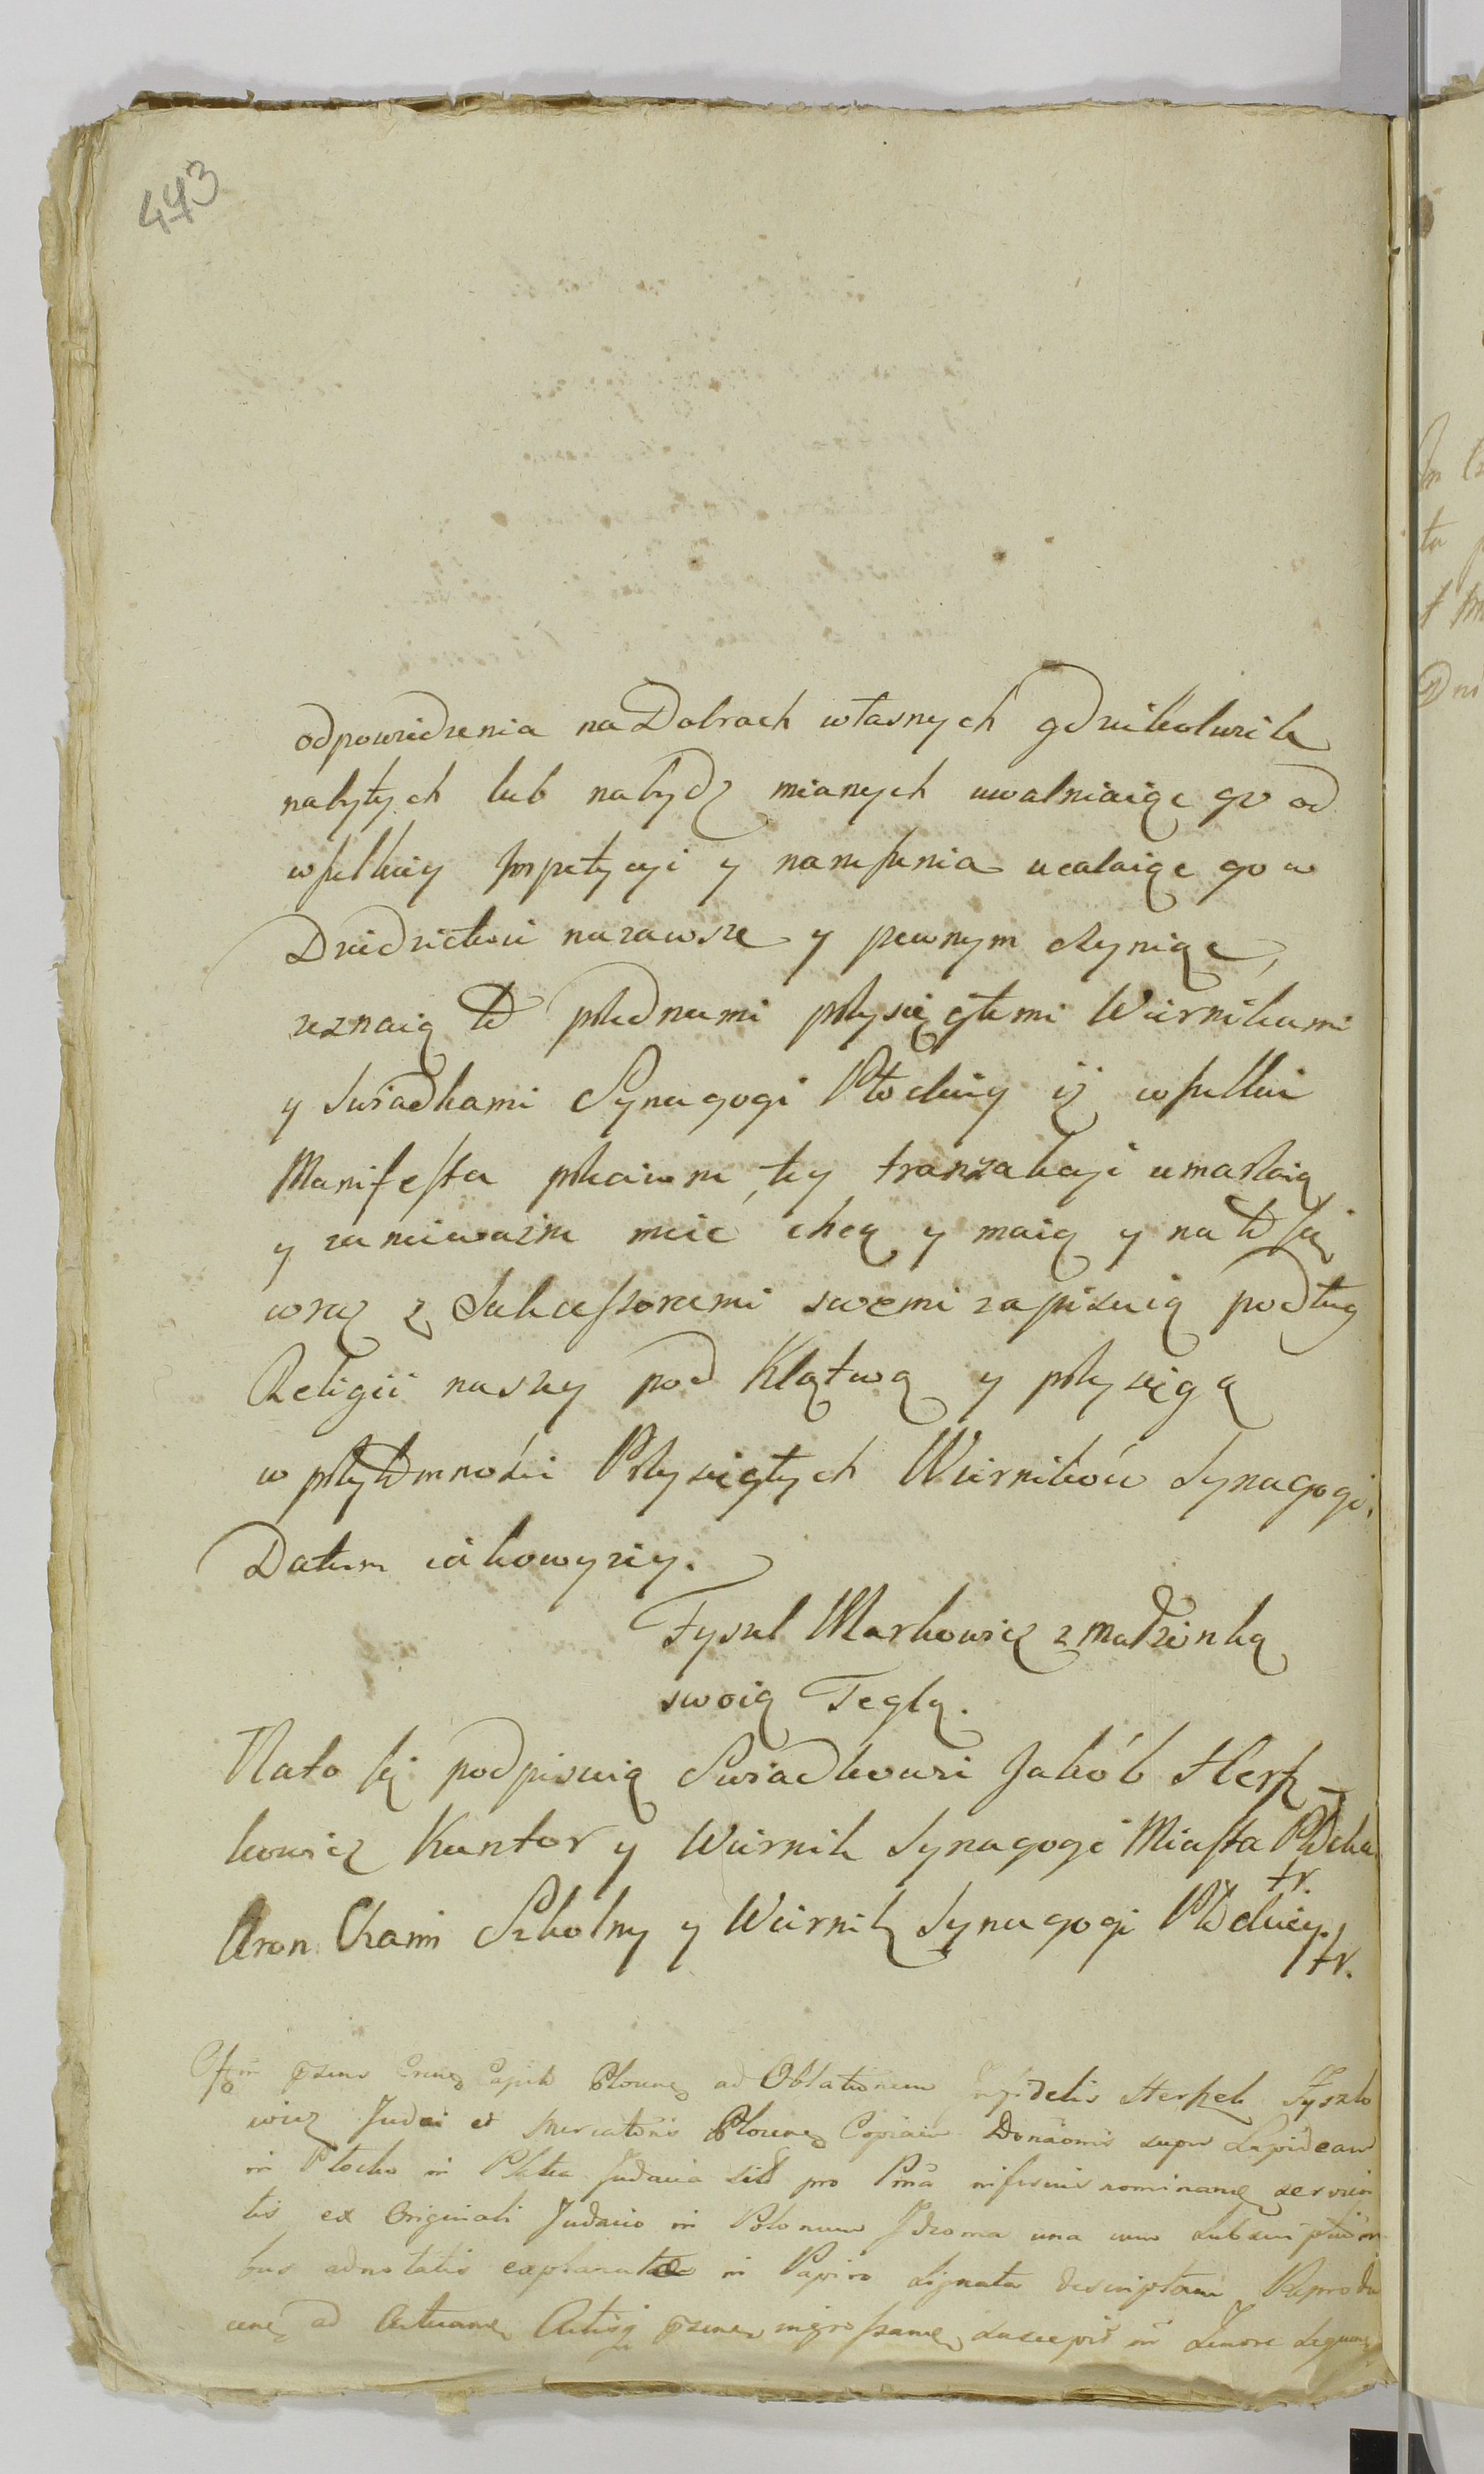 443
odpowiedzenia na Dobrach własnych gdziekolwiek
nabytych lub nabydz mianych uwalniaiąc go od
wszelkiey Impetycyi y naruszenia ucalaiąc go w
Dziedzictwie nazawsze y pewnym czyniąc,
zeznaią to przed nami przysięgłemi Wiernikami
y Swiadkami Synagogi Płockiey iż wszelkie
Manifesta przeciwne tey tranzakcyi umarzaią
y za nieważne mieć chcą y maią y na to się
wraz z Sukcessorami swemi zapisuią podług
Religii naszey pod Klątwą y przysięgą
w przytomności Przysięgłych Wierników Synagogi.
Datum iak owyzey.
Fyszel Markowicz z Małżonką
swoią Teglą.
Na to się podpisuią Swiadkowie Jakób Hersz-
kowicz Kantor y Wiernik Synagogi Miasta Płocka
tr.
Aron Chaim Szkolny y Wiernik Synagogi Płockiey.
tr.
ad Oblationem Infidelis Herszek Fyszlo
wicz Judei et Mercatoris Copiam Donãonis super Lapideam
in Płocko in Platea Judaica pro
tis ex Originali Judaico in Polonum Idioma una cum Subscriptionі
bus adnotatis explanatae in Papiro Signata descriptam Reprodu
ad suscepit